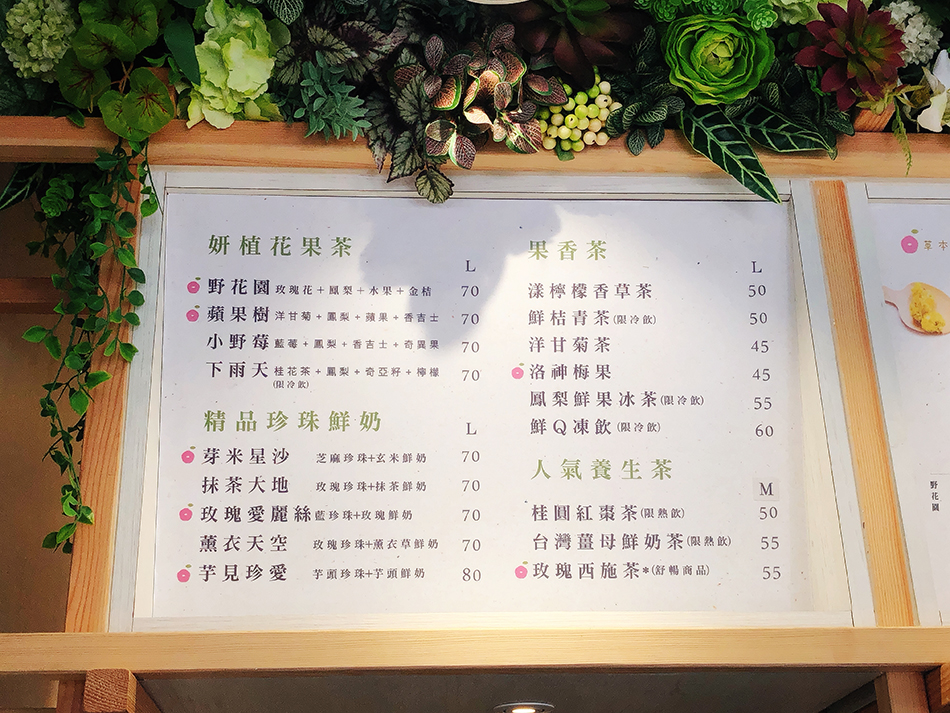 妍植花果茶
L
野花園 玫瑰花+鳳梨+水果+金桔 70
蘋果樹 洋甘菊+鳳梨+蘋果+香吉士 70
小野莓 藍莓+鳳梨+香吉士+奇異果 70
下雨天 桂花茶+鳳梨+奇亞籽+檸檬 70
(限冷飲)
精品珍珠鮮奶 L
芽米星沙 芝麻珍珠+玄米鮮奶 70
抹茶大地 玫瑰珍珠+抹茶鮮奶 70
玫瑰愛麗絲 藍珍珠+玫瑰鮮奶 70
薰衣天空 玫瑰珍珠+薰衣草鮮奶 70
芋見珍愛 芋頭珍珠+芋頭鮮奶 80
果香茶
L
漾檸檬香草茶 50
鮮桔青茶(限冷飲) 50
洋甘菊茶 45
洛神梅果 45
鳳梨鮮果冰茶(限冷飲) 55
鮮Q凍飲(限冷飲) 60
人氣養生茶
M
桂圓紅棗茶(限熱飲) 50
台灣薑母鮮奶茶(限熱飲) 55
玫瑰西施茶*(舒暢商品) 55
草本
野花園